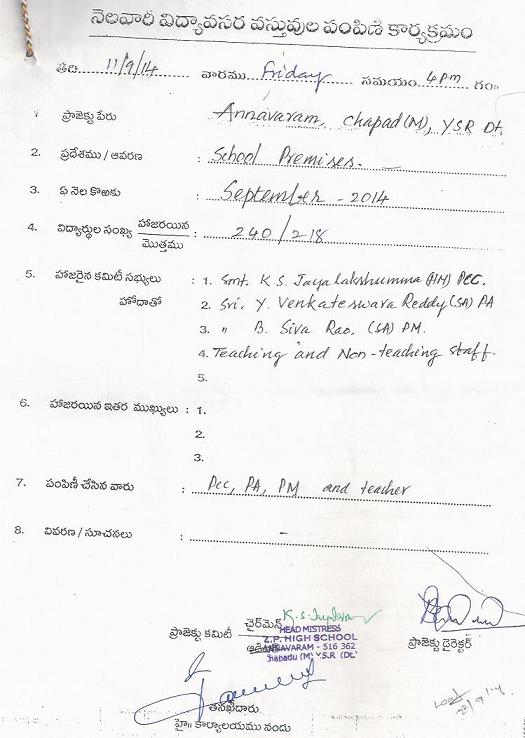 నెలవారీ విద్యావసర వస్తువుల పంపిణి కార్యక్రమం
తేది. 11/9/14 వారము Friday సమయం. 4 pm గం॥
1. ప్రాజెక్టు పేరు : Annavaram, Chapad (M), YSR Dt.
2. ప్రదేశము / ఆవరణ : School Premises.
3. ఏ నెల కొఱకు : September - 2014
4. విద్యార్థుల సంఖ్య హాజరయిన / మొత్తము : 240/218
5. హాజరైన కమిటీ సభ్యులు : 1. Smt. K.S. Jayalakshumma (HM) PCC.
హోదాతో 2. Sri. Y. Venkateswara Reddy (SA) PA
3. " B. Siva Rao, (SA) PM.
4. Teaching and Non-teaching staff.
5.
6. హాజరయిన ఇతర ముఖ్యులు : 1.
2.
3.
7. పంపిణీ చేసిన వారు : Pcc, PA, PM and teacher
8. వివరణ / సూచనలు : -
ప్రాజెక్టు కమిటీ చైర్‌మెన్ K.S. Jayalaxm
HEAD MISTRESS
Z.P. HIGH SCHOOL
ANNAVARAM - 516 362
Chapadu (M) Y.S.R. (Dt.)
ప్రాజెక్టు డైరెక్టర్
తనిఖీదారు
హై॥ కార్యాలయము నందు